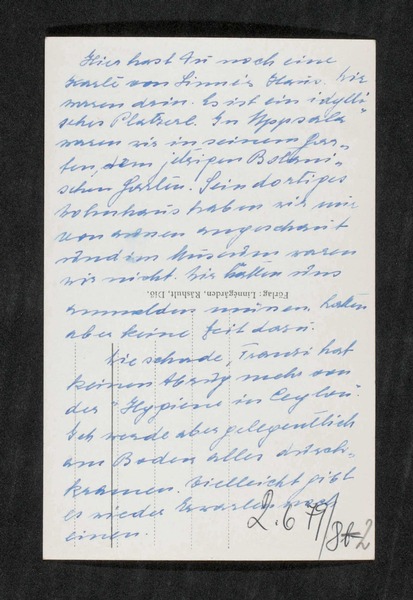 Hier hast Du noch eine
Karte von Linné's Haus. Wir
waren drin. Es ist ein idylli-
sches Platzerl. In Uppsala
waren wir in seinem Gar-
ten, dem jetzigen Botani-
schen Garten. Sein dortiges
Wohnhaus haben wir nur
von aussen angeschaut
und im Museum waren
wir nicht. Wir hätten uns
Förlag: Linnégården, Råshult, Diö.
anmelden müssen, hatten
aber keine Zeit dazu.
Wie schade, Franzi hat
keinen Abzug mehr von
der "Hygiene in Ceylon".
Ich werde aber gelegentlich
am Boden alles durch-
kramen. Vielleicht gibt
es wieder Erwarten noch
einen.
2.6 79/